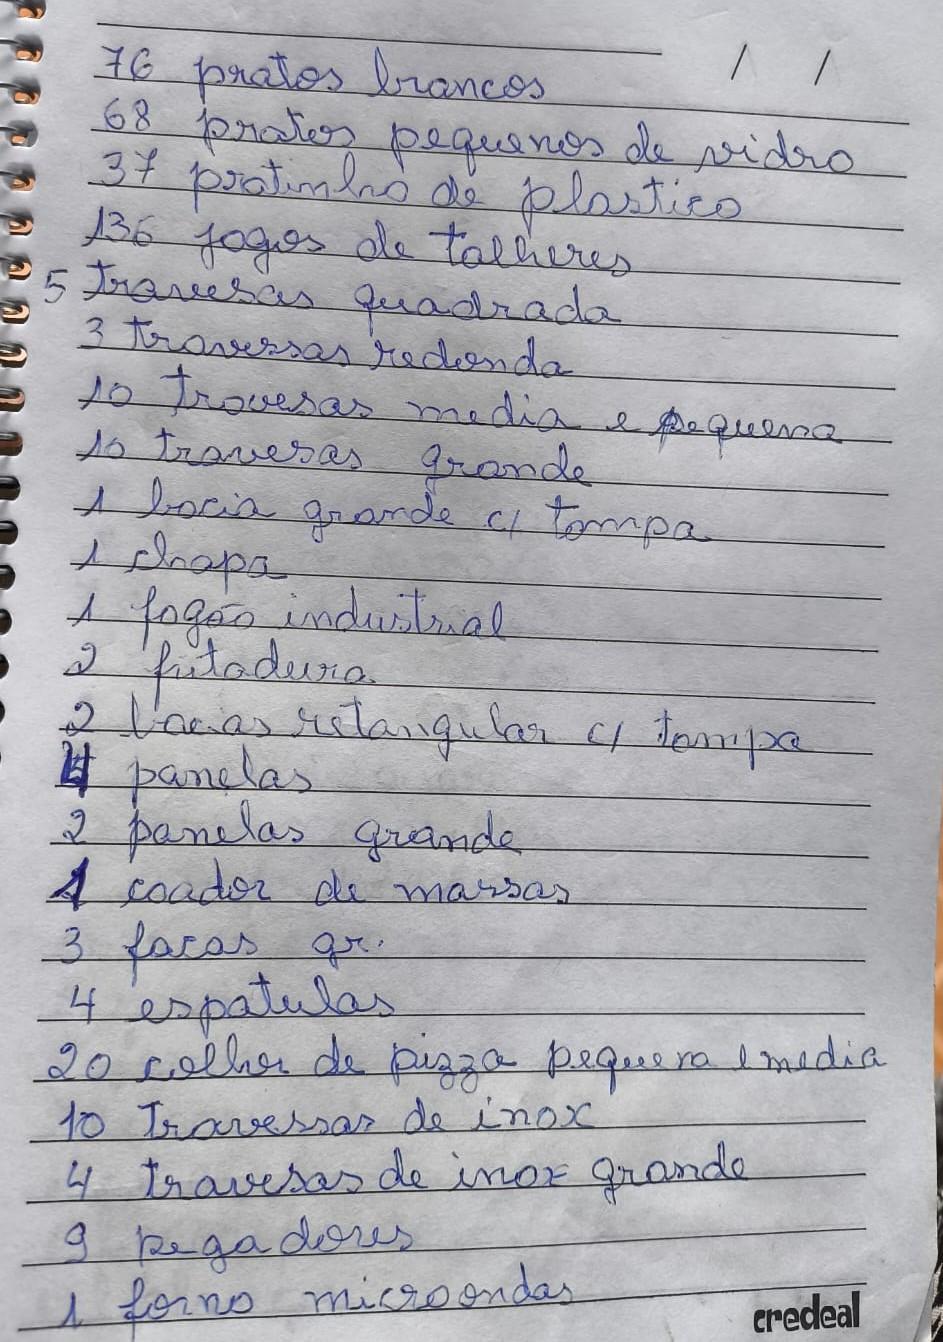 / /
76 pratos brancos
68 pratos pequenos de vidro
37 pratinho de plastico
136 jogos de talheres
5 travesas quadrada
3 travessas redonda
10 travesas media e pequena
10 travesas grande
1 bacia grande c/ tampa
1 chapa
1 fogão industrial
2 fritadura
2 bacias retangular c/ tampa
4 panelas
2 panelas grande
1 coador de massas
3 facas gr.
4 espatulas
20 colher de pizza pequena e media
10 Travessas de inox
4 travesas de inox grande
9 pegadores
1 forno microondas
credeal